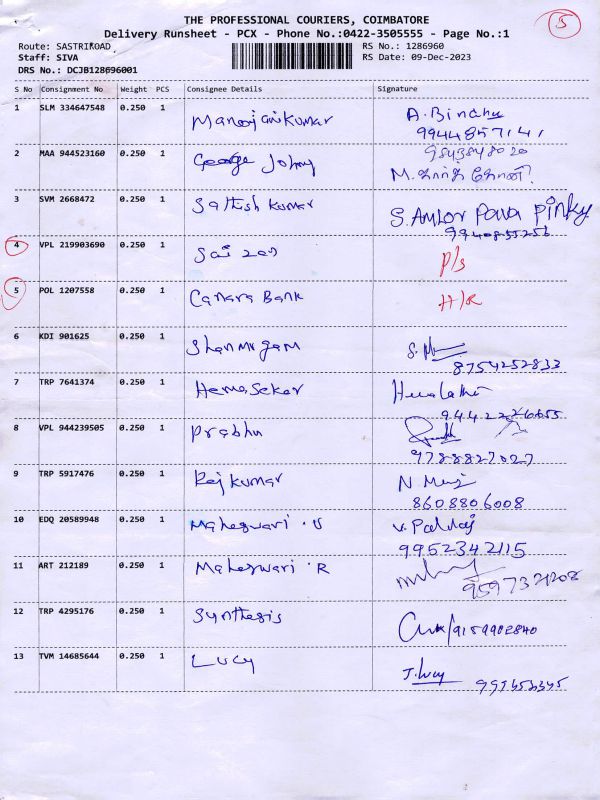 5
THE PROFESSIONAL COURIERS, COIMBATORE
Delivery Runsheet - PCX - Phone No.:0422-3505555 - Page No.:1
Route: SASTRIROAD
RS No.: 1286960
Staff: SIVA
RS Date: 09-Dec-2023
DRS No.: DCJB128696001
S No Consignment No Weight PCS Consignee Details Signature
1 SLM 334647548 0.250 1 A. Bindhu
9944857141
2 MAA 944523160 0.250 1 George Johny
3 SVM 2668472 0.250 1 Sathish Kumar
4 VPL 219903690 0.250 1 P/s
5 POL 1207558 0.250 1 Canara Bank
6 KDI 901625 0.250 1 Shanmugam
8754252833
7 TRP 7641374 0.250 1 Hemasekar
8 VPL 944239505 0.250 1 Prabhu
9788827027
9 TRP 5917476 0.250 1 Rajkumar
8608806008
10 EDQ 20589948 0.250 1 Maheswari . U
9952342115
11 ART 212189 0.250 1 Maheswari . R
12 TRP 4295176 0.250 1 Synthesis
9159902840
13 TVM 14685644 0.250 1 Lucy J. Lucy